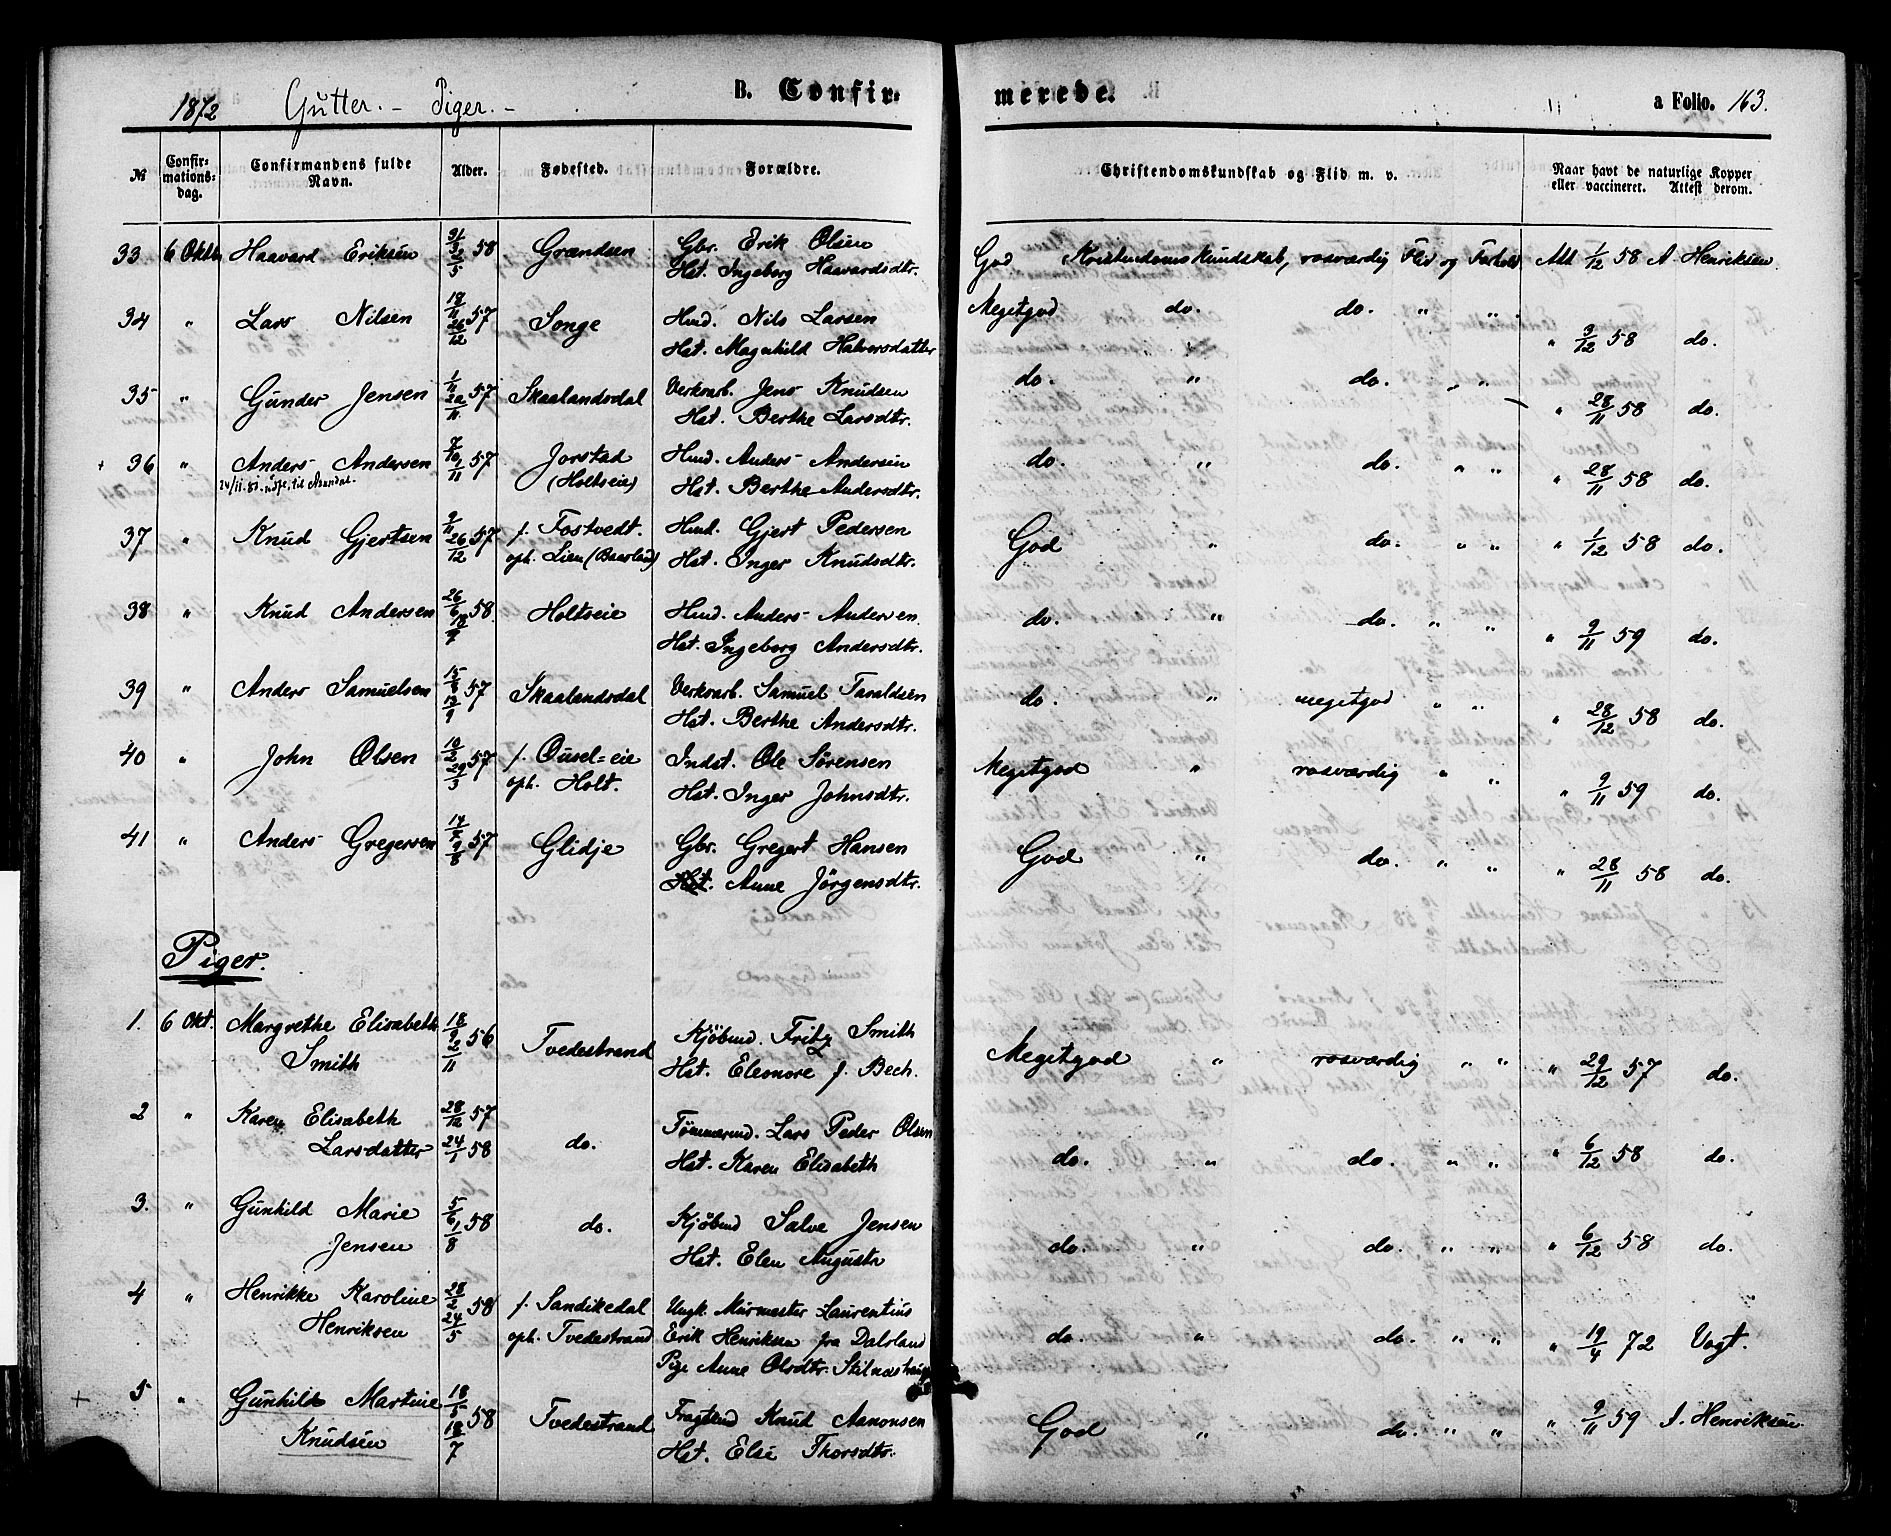 1872 Gutter. - Piger. - B. Confir- merede. a Folio. 163.
№ Confir- mations- dag. Confirmandens fulde Navn. Alder. Fødested. Forældre. Christendomskundskab og Flid m. v. Naar havt de naturlige Kopper eller vaccineret. Attest derom.
33 6 Oktb. Haavard Eriksen 31/3 2/5 58 Grændsen Gbr. Erik Olsen God Kristendomskundskab, rosværdig Flid og Forhold Att 1/12 58 A. Henriksen.
Hst. Ingeborg Haavardsdtr.
34 " Lars Nilsen 18/11 26/12 57 Songe Hmd. Nils Larsen Megetgod do. do. " " " 3/12 58 do.
Hst. Magnhild Halvorsdatter
35 " Gunder Jensen 1/11 22/11 57 Skaalandsdal Verksarb. Jens Knudsen do. " do. " " " 28/11 58 do.
Hst. Berthe Larsdtr.
+ 36 " Anders Andersen 7/10 1/11 57 Jorstad Hmd. Anders Andersen do. " do. " " " 28/11 58 do.
24/11-81. udfl. til Arendal. (Holtseie) Hst. Berthe Andersdtr.
37 " Knud Gjertsen 9/11 26/12 57 f. Fostvedt. Hmd. Gjert Pedersen God " do. " " " 1/12 58 do.
oph. Lien (Baarland) Hst. Inger Knudsdtr.
38 " Knud Andersen 26/6 18/7 58. Holtseie Hmd. Anders Andersen do. " do. " " " 9/11 59 do.
Hst. Ingeborg Andersdtr.
39 " Anders Samuelsen 15/8 13/9 57 Skaalandsdal Verksarb. Samuel Taraldsen do. " megetgod " " " 28/12 58 do.
Hst. Berthe Andersdtr.
40 " John Olsen 10/2 29/3 57 f. Ousel=eie Indst. Ole Sørensen Megetgod " rosværdig " " " 9/11 59 do.
oph. Holt. Hst. Inger Johnsdtr.
41 " Anders Gregersen 14/7 9/8 57 Glidje Gbr. Gregert Hansen God " do. " " " 28/11 58 do.
Hst. Anne Jörgensdtr.
Piger.
1. 6 Okt. Margrethe Elisabeth 18/9 2/11 56 Tvedestrand Kjöbmd. Fritz Smith Megetgod " rosværdig " " " 29/12 57 do.
Smith Hst. Eleonore f. Bech.
2 " Karen Elisabeth 28/12 57 do. Tömmermd. Lars Peder Olsen do. " do. " " " 6/12 58 do.
Larsdatter 24/1 58 Hst. Karen Elisabeth
3. " Gunhild Marie 5/6 1/8 58 do. Kjöbmd Salve Jensen do. " do. " " " 6/12 58 do.
Jensen Hst. Elen Augusta
4 " Henrikke Karoline 28/2 24/5 58 f. Sandikedal Ungk. Murmester Laurentius do. " do. " " " 19/4 72 Vogt.
Henriksen oph. Tvedestrand Erik Henriksen fra Dalsland
Pige Anne Olsdtr.
+ 5 " Gunhild Martine 18/5 18/7 58 Tvedestrand Fragtmd Knud Aanonsen God " do. " " " 9/11 59 J. Henriksen.
Knudsen Hst. Else Thorsdtr.